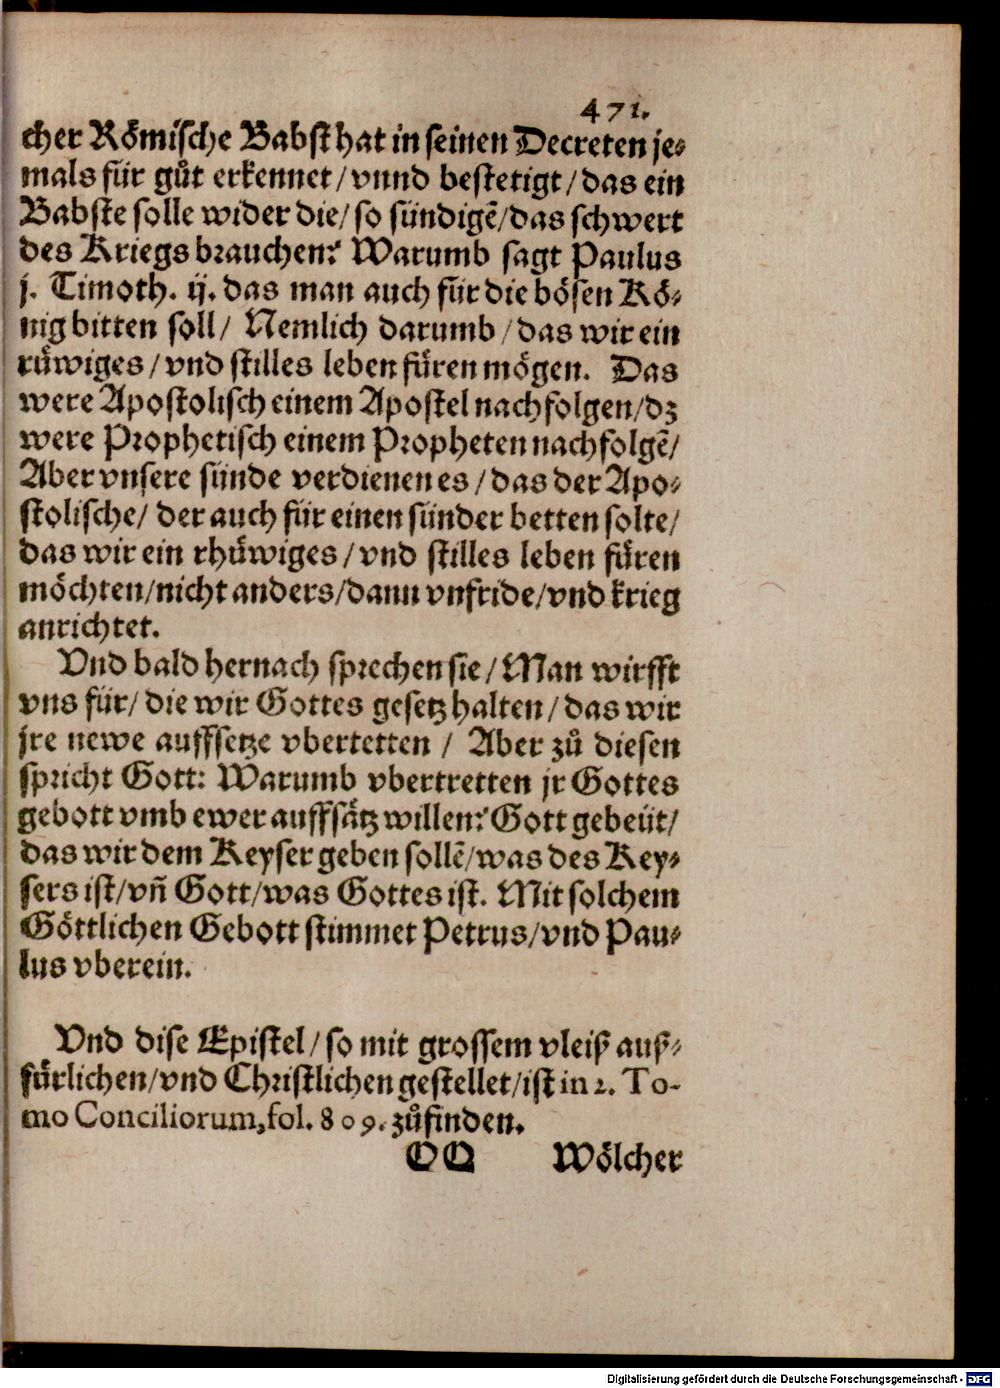 471.
cher Römische Babst hat in seinen Decreten je⸗
mals für gůt erkennet/ vnnd bestetigt/ das ein
Babste solle wider die/ so sündigẽ/ das schwert
des Kriegs brauchen? Warumb sagt Paulus
j. Timoth. ij. das man auch für die bösen Kö⸗
nig bitten soll/ Nemlich darumb/ das wir ein
rüwiges/ vnd stilles leben füren mögen. Das
were Apostolisch einem Apostel nachfolgen/ dz
were Prophetisch einem Propheten nachfolgẽ/
Aber vnsere sünde verdienen es/ das der Apo⸗
stolische/ der auch für einen sünder betten solte/
das wir ein rhüwiges/ vnd stilles leben füren
möchten/ nicht anders/ dann vnfride/ vnd krieg
anrichtet.
Vnd bald hernach sprechen sie/ Man wirfft
vns für/ die wir Gottes gesetz halten/ das wir
jre newe auffsetze vbertetten/ Aber zů diesen
spricht Gott: Warumb vbertretten jr Gottes
gebott vmb ewer auffsätz willen? Gott gebeüt/
das wir dem Keyser geben sollẽ/ was des Key⸗
sers ist/ vñ Gott/ was Gottes ist. Mit solchem
Göttlichen Gebott stimmet Petrus/ vnd Pau⸗
lus vberein.
Vnd dise Epistel/ so mit grossem vleiß auß⸗
fürlichen/ vnd Christlichen gestellet/ ist in 2. To-
mo Conciliorum, fol. 809. zůfinden.
QQ Wölcher
Digitalisierung gefördert durch die Deutsche Forschungsgemeinschaft - DFG